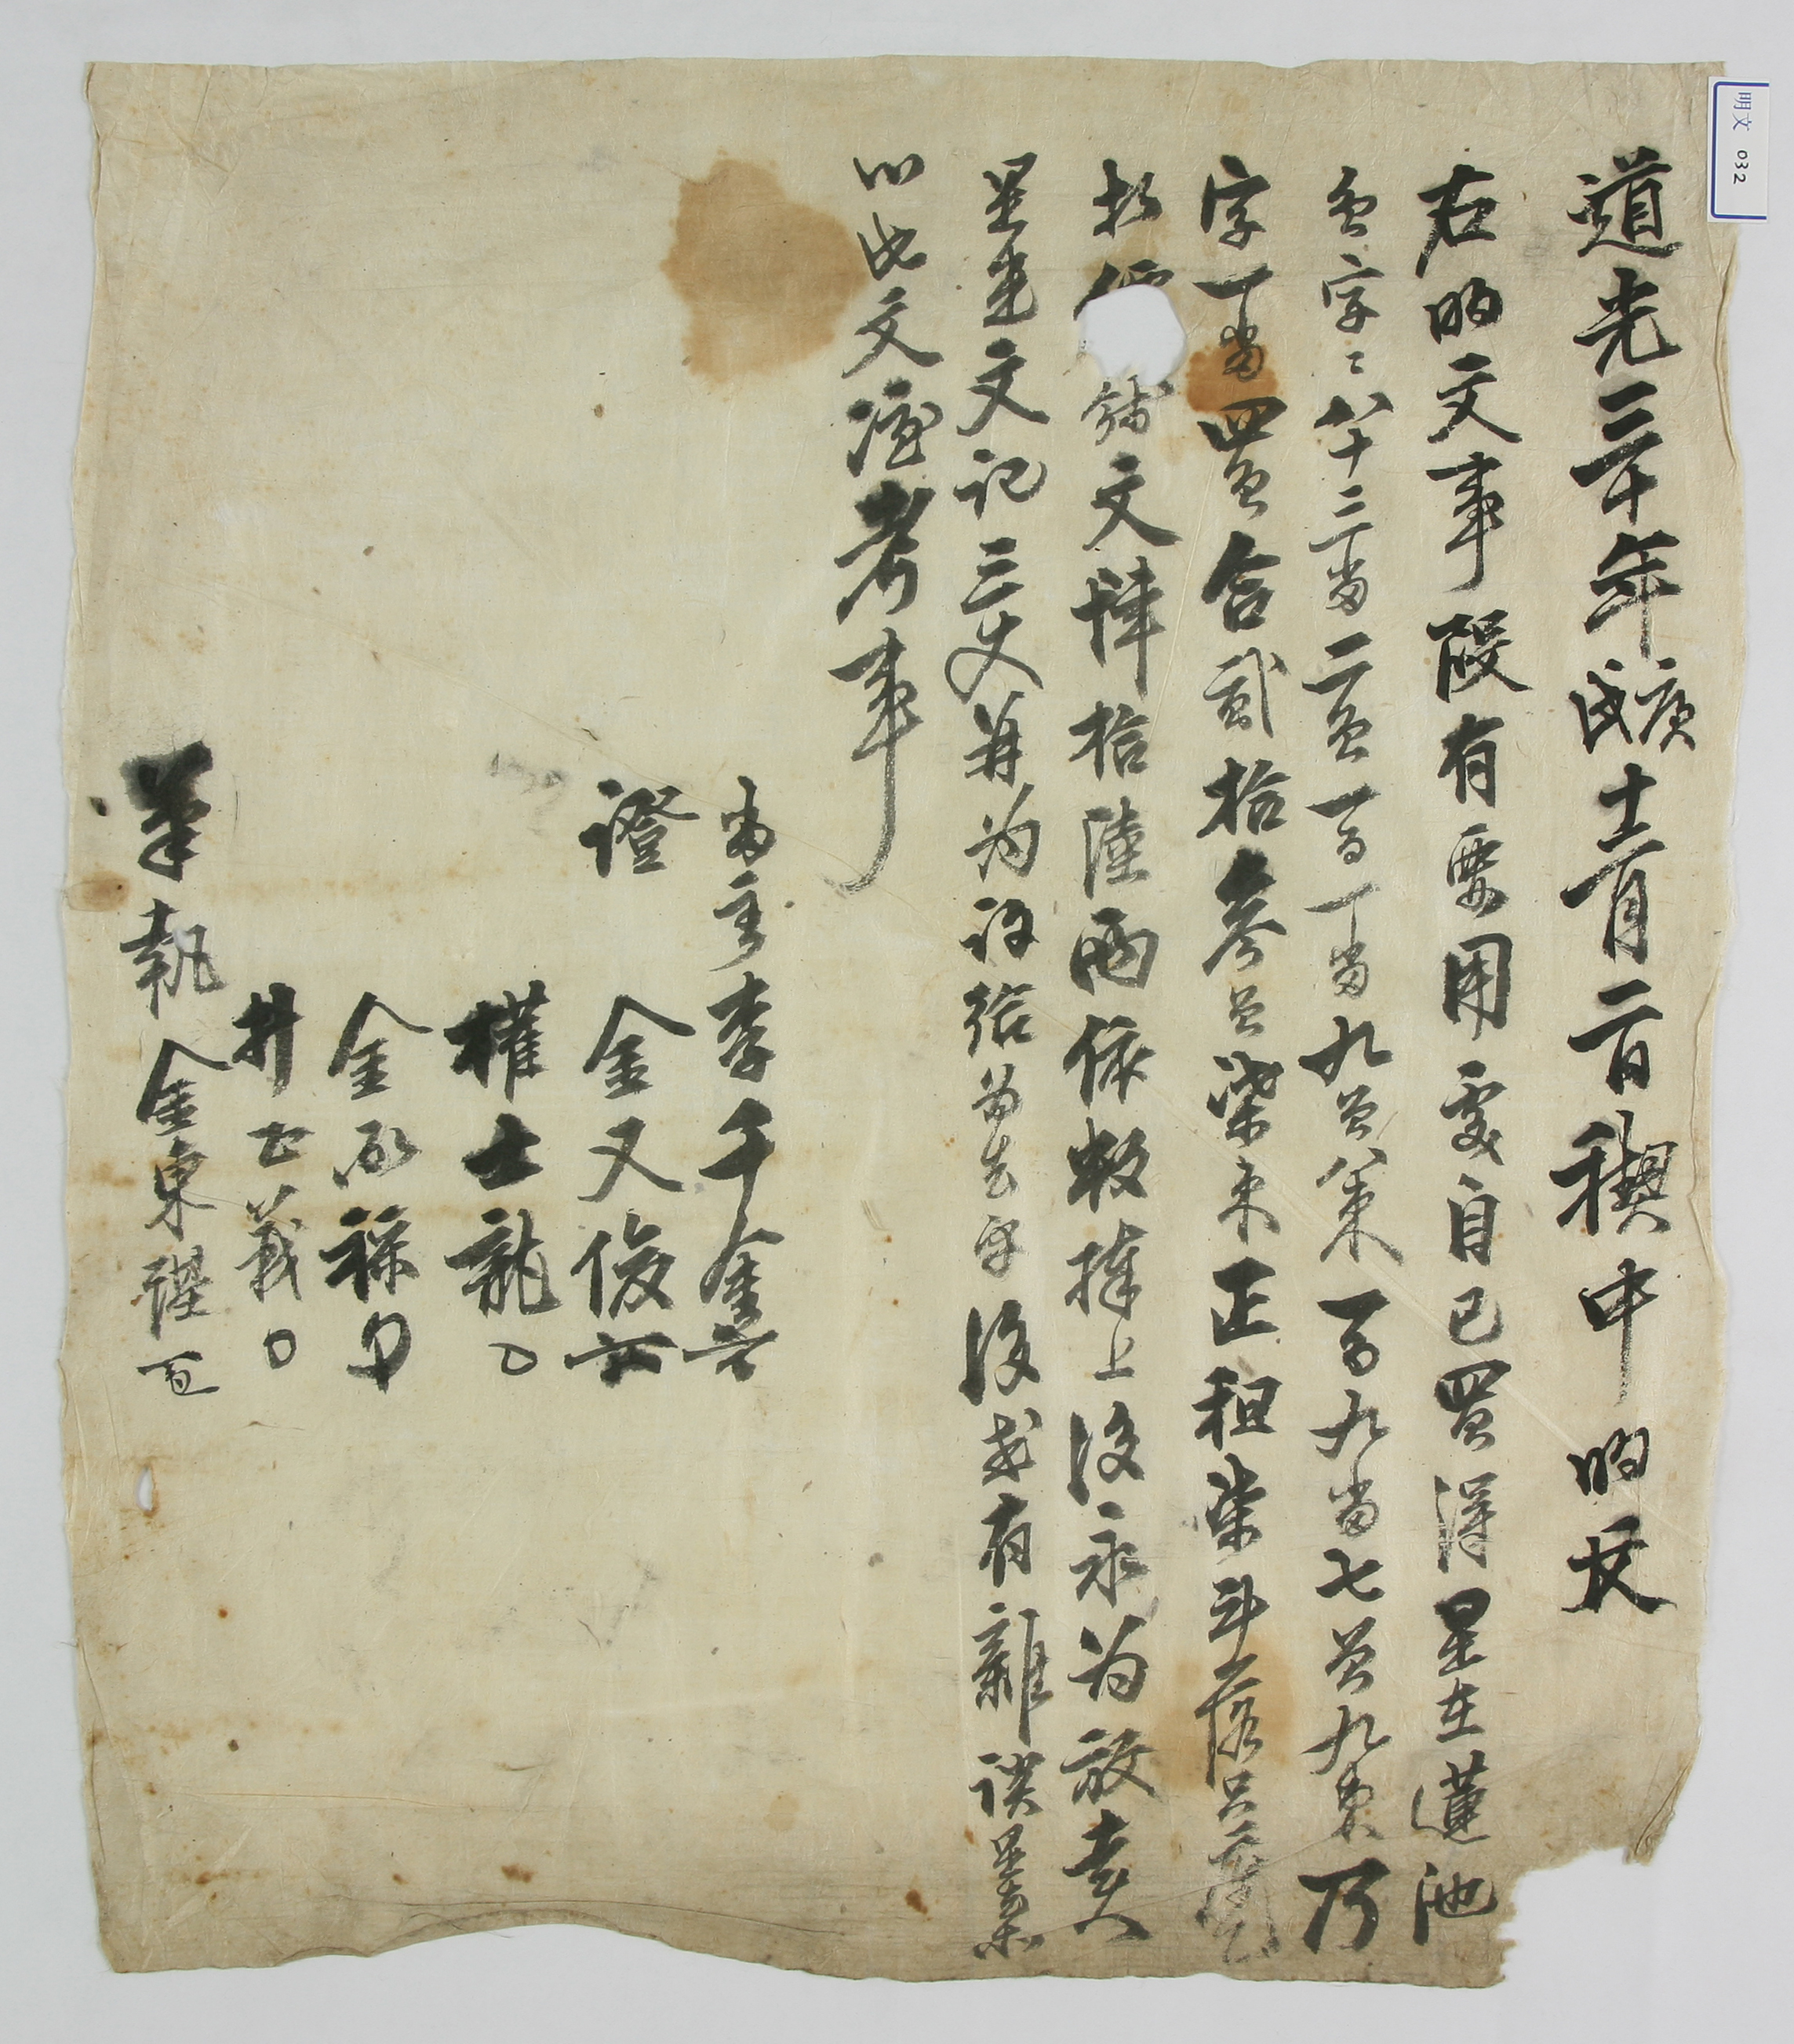 明文 032
道光三十年庚戌十二月二日稧中明文
右明文事段有要用處自己買淂是在蓮池
員字二八十三畓二負一百丁畓九負八束一百九畓七負九束乃
字丁畓四負合貳拾參負柒束正租柒斗落只庫乙
折價錢文肆拾陸兩依數捧上後永爲放賣
是遣文記三丈幷爲許給爲去乎後或有雜談是余
以此文憑考事
畓主李千金
證 金又俊
權士龍
金
井 義
筆執金東